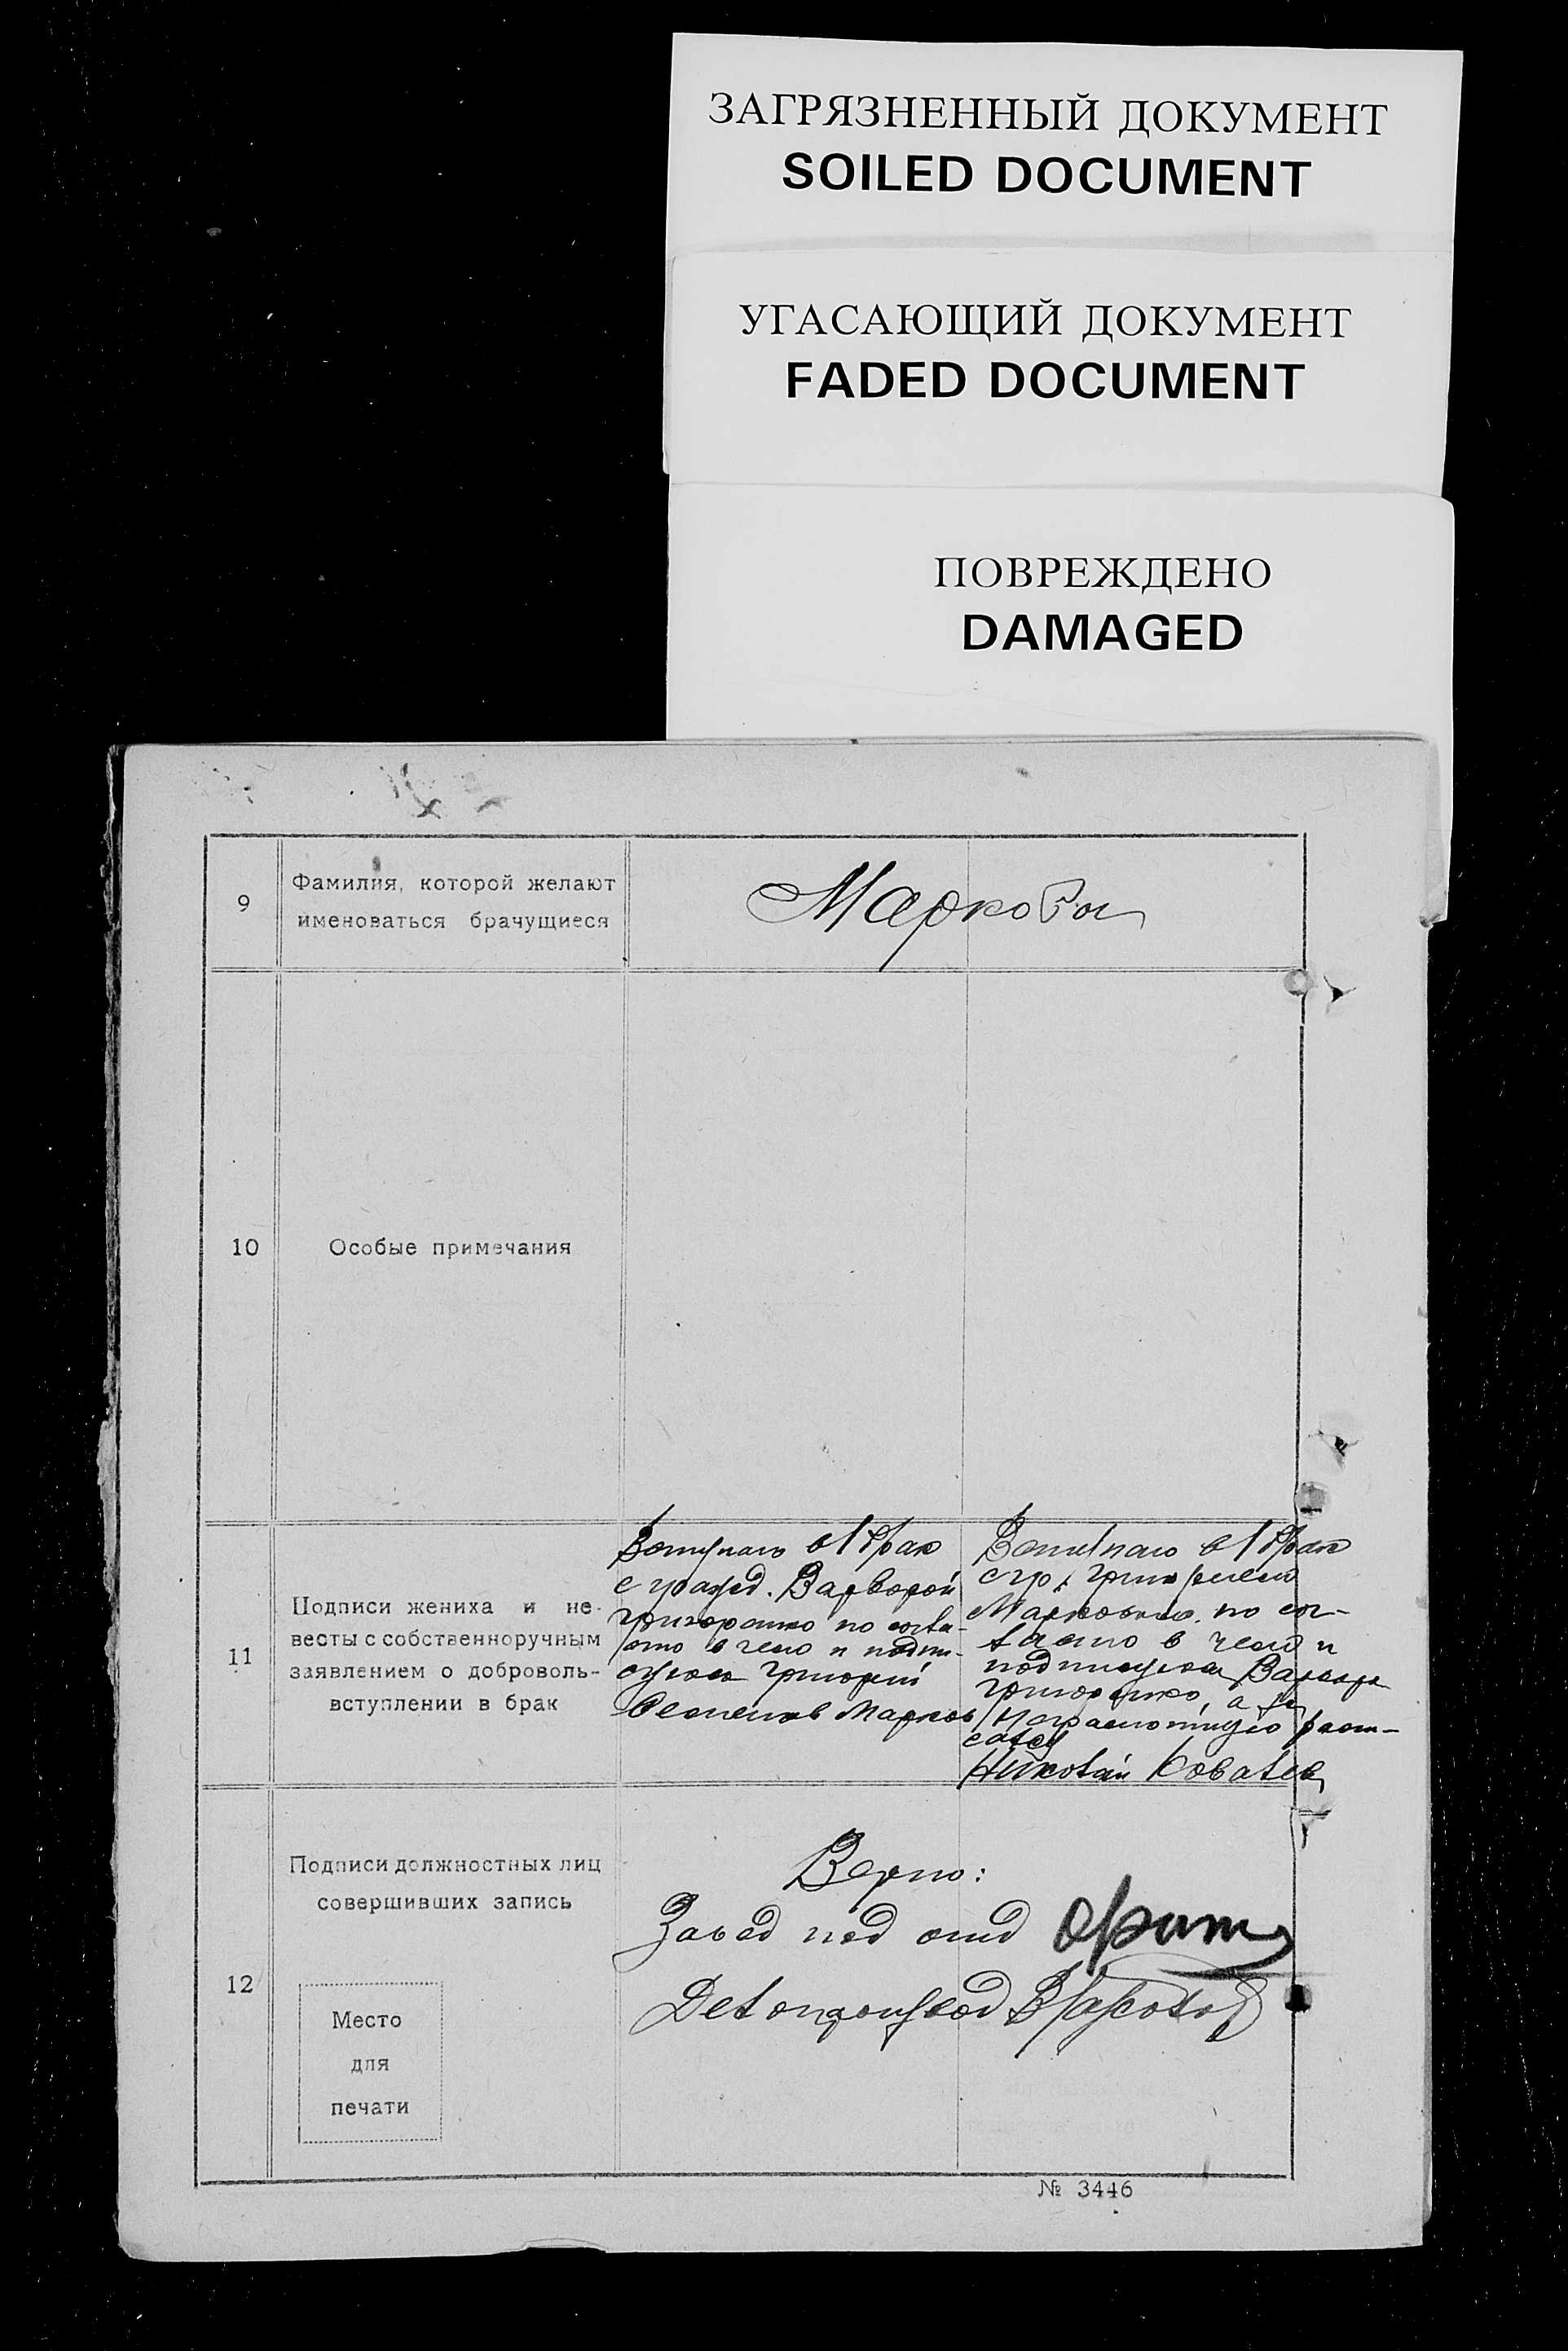 ЗАГРЯЗНЕННЫЙ ДОКУМЕНТ
SOILED DOCUMENT
УГАСАЮЩИЙ ДОКУМЕНТ
FADED DOCUMENT
ПОВРЕЖДЕНО
DAMAGED
9
Фамилия, которой желают
именоваться брачущиеся
Марковы
10
Особые примечания
11
Подписи жениха и не-
весты с собственноручным
заявлением о доброволь-
вступлении в брак
Вступаю в 1 брак
с гражд. Варварой
Григоренко по согла-
сию в чем и подпи-
суюсь Григорий
Семенов Марков
Вступаю в 1 брак
с гр. Григорием
Марковым по сог-
ласию в чем и
подписуюсь Варвара
Григоренко, а за
неграмотную расп-
Николай Ковалев
12
Подписи должностных лиц
совершивших запись
Место
для
печати
Верно:
Завед под отд
№ 3446